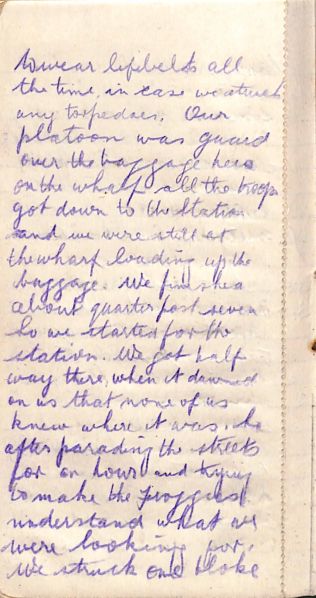 to wear lifebelts all
the time, in case we struck
any torpedoes. Our
platoon was guard
over the baggage here
on the wharf all the troops
got down to the Station
and we were still at
the wharf loading up the
baggage. We finished
about quarter past seven
So we started for the
station. We got half
way there, when it dawned
on us that none of us
knew where it was, so
after parading the streets
for an hour and trying
to make the froggies
understand what we
were looking for,
We struck one bloke